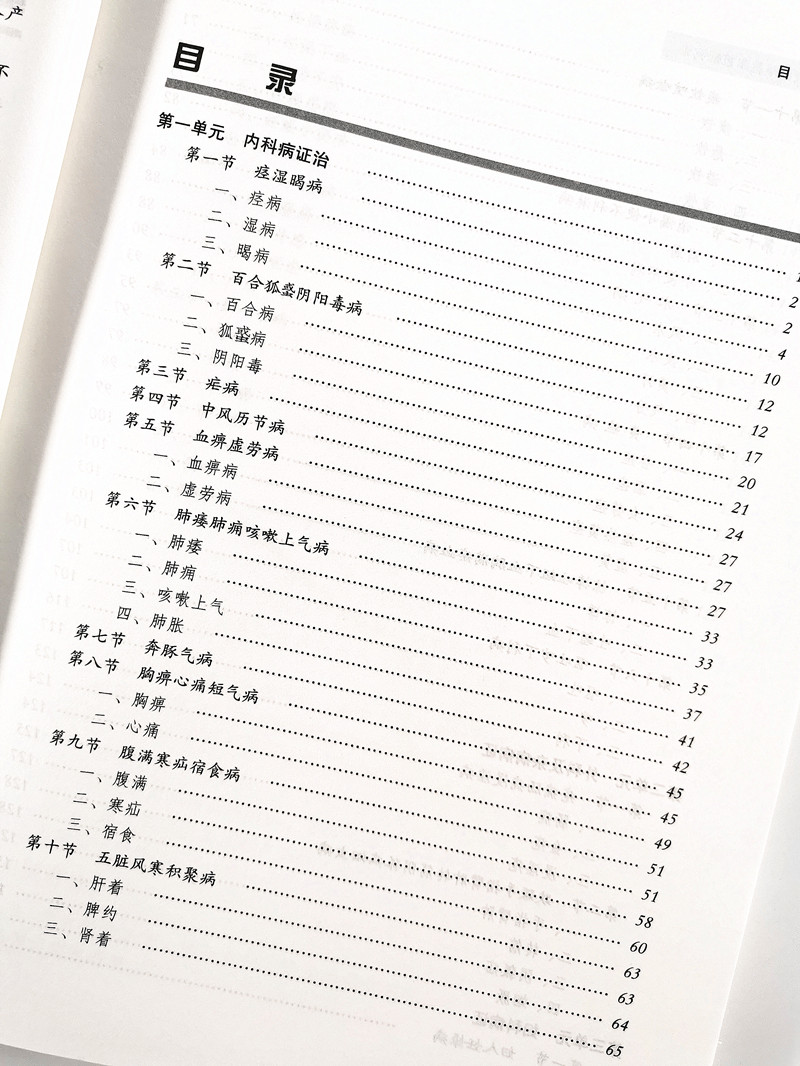 产
不
目
目 录
第一单元 内科病证治 …… 1
第一节 痉湿暍病 …… 2
一、痉病 …… 2
二、湿病 …… 4
三、暍病 …… 10
第二节 百合狐𧌒阴阳毒病 …… 12
一、百合病 …… 12
二、狐𧌒病 …… 17
三、阴阳毒 …… 20
第三节 疟病 …… 21
第四节 中风历节病 …… 24
第五节 血痹虚劳病 …… 27
一、血痹病 …… 27
二、虚劳病 …… 27
第六节 肺痿肺痈咳嗽上气病 …… 33
一、肺痿 …… 33
二、肺痈 …… 35
三、咳嗽上气 …… 37
四、肺胀 …… 41
第七节 奔豚气病 …… 42
第八节 胸痹心痛短气病 …… 45
一、胸痹 …… 45
二、心痛 …… 49
第九节 腹满寒疝宿食病 …… 51
一、腹满 …… 51
二、寒疝 …… 58
三、宿食 …… 60
第十节 五脏风寒积聚病 …… 63
一、肝着 …… 63
二、脾约 …… 64
三、肾着 …… 65